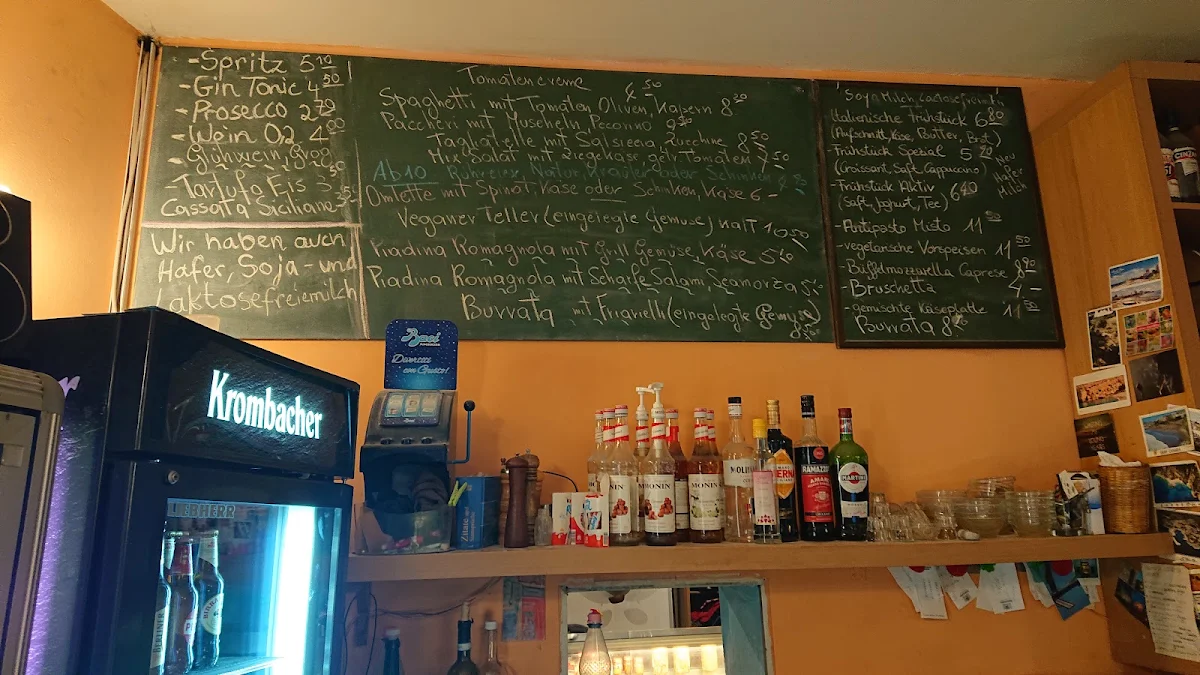 -Spritz 5 10
-Gin Tonic 4 50
-Prosecco 2 70
-Wein 0,2 4 00
-Glühwein, Grog
-Tartufo Eis 3
Cassata Siciliane
Wir haben auch
Hafer, Soja- und
Laktosefreiemilch
Tomatencreme 4 50
Spaghetti mit Tomaten Oliven, Kapern 8 20
Paccheri mit Muscheln, Pecorino 9 50
Tagliatelle mit Salsiccia, Zucchine 8 50
Mix Salat mit Ziegekäse, getr Tomaten 7 50
Ab 10 Natur, Kräuter oder Schinken
Omlette mit Spinat, Käse oder Schinken, Käse 6 -
Veganer Teller (eingelegte Gemüse) halt 10 50
Piadina Romagnola mit Grill Gemüse, Käse 5
Piadina Romagnola mit Scharfe Salami, Scamorza 5
Burrata mit Friarielli (eingelegte Gemüse)
8 50
Soya Milch, Lactosefrei
Italienische Frühstück 6 80
(Aufschnitt, Käse, Butter, Brot)
-Frühstück Spezial 5 20
(Croissant, Saft, Cappuccino)
-Frühstück Aktiv 6 40
(Saft, Joghurt, Tee)
Neu
Hafer
Milch
-Antipasto Misto 11 50
-vegetarische Vorspeisen 11 50
-Büffelmozzarella Caprese 8 90
-Bruschetta 4 -
-gemischte Käseplatte 11 50
Burrata 8
Krombacher
LIEBHERR
Baci
Dimmelo
con Gusto!
MONIN
MONIN
MONIN
MOLINARI
RAMAZZOTTI
AMARO
MARTINI
CINZANO